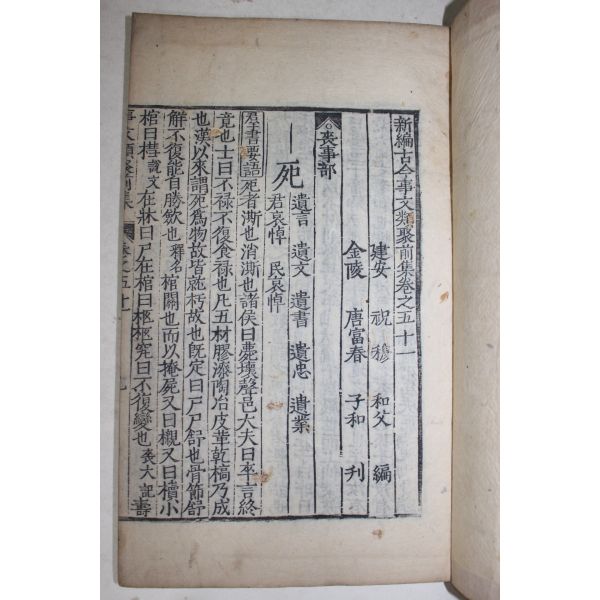 新編古今事文類聚前集卷之五十一
建安 祝穆 和父 編
金陵 唐富春 子和 刊
喪事部
死 遺言 遺文 遺書 遺忠 遺業
君哀悼 民哀悼
羣書要語 死者澌也消澌也諸侯曰薨壞聲邑大夫曰卒言終
竟也士曰不祿不復食祿也凡五材膠漆陶冶皮革乾槁乃成
也漢以來謂死爲物故皆就朽故也旣定曰尸尸舒也骨節舒
解不復能自勝斂也釋名 棺關也而以掩屍又曰櫬又曰櫝小
棺曰槥說文 在牀曰尸在棺曰柩柩究曰不復變也喪大記 壽
卷之五十